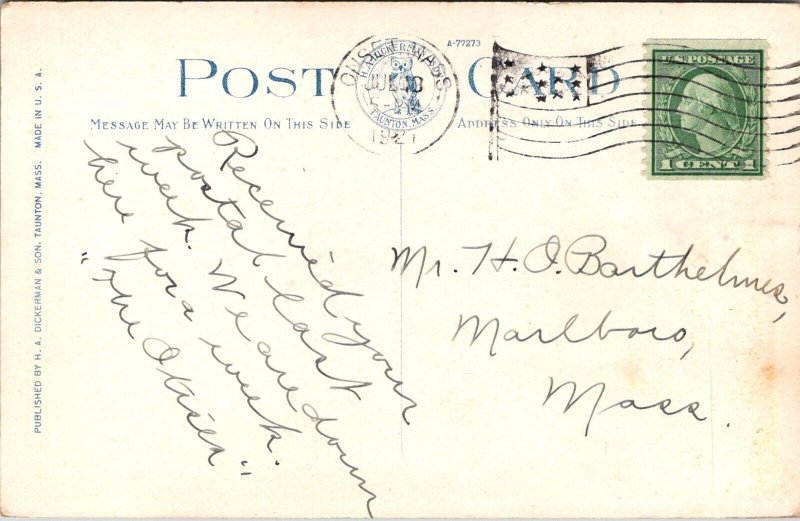 POST CARD
A-77273
H. A. DICKERMAN & SON
TAUNTON, MASS.
ONSET MASS
1927
U.S. POSTAGE
1 CENT 1
MESSAGE MAY BE WRITTEN ON THIS SIDE
ADDRESS ONLY ON THIS SIDE
PUBLISHED BY H. A. DICKERMAN & SON, TAUNTON, MASS. MADE IN U. S. A.
Received your
postal last
week. We are down
here for a week.
"The
Mr. H. O. Barthelmes,
Marlboro,
Mass.